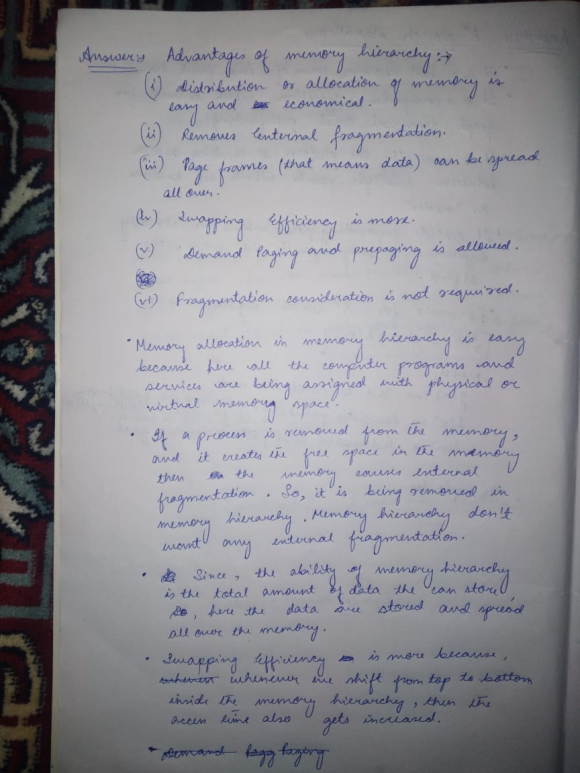 Answer:→ Advantages of memory hierarchy:→
(i) Distribution or allocation of memory is
easy and economical.
(ii) Removes External fragmentation.
(iii) Page frames (that means data) can be spread
all over.
(iv) Swapping Efficiency is more.
(v) Demand Paging and prepaging is allowed.
(vi) Fragmentation consideration is not required.
• Memory allocation in memory hierarchy is easy
because here all the computer programs and
services are being assigned with physical or
virtual memory space.
• If a process is removed from the memory,
and it creates the free space in the memory
then the memory causes external
fragmentation. So, it is being removed in
memory hierarchy. Memory hierarchy don't
want any external fragmentation.
• Since, the ability of memory hierarchy
is the total amount of data the can store,
So, here the data are stored and spread
all over the memory.
• Swapping Efficiency is more because,
whenever we shift from top to bottom
inside the memory hierarchy, then the
access time also gets increased.
• Demand Pagg Paging